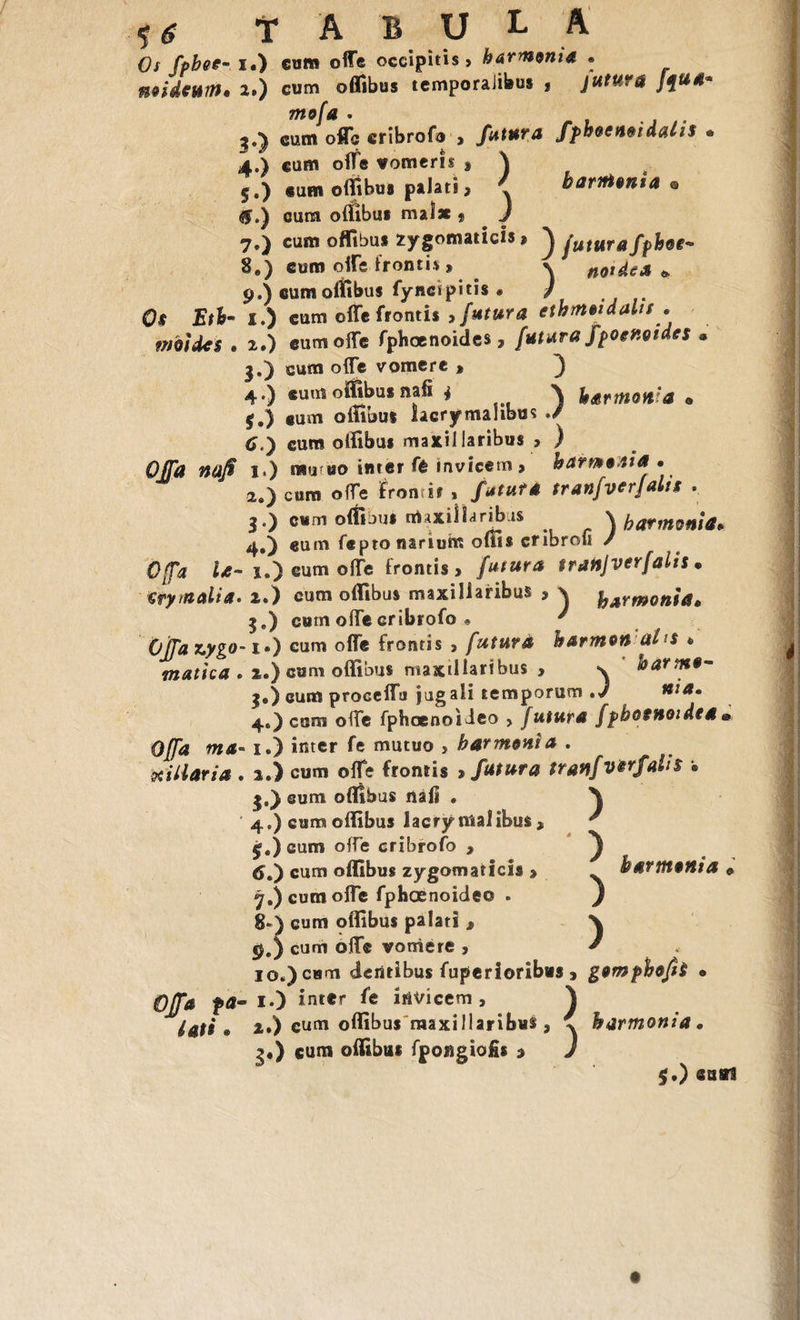 56 TABULA
Os ſphœ- 1.) cum oſſe occipitis, harmonia .
noideum. 2.) cum oſſibus temporalibus , ſutura ſqua-
moſa .
3.) cum oſſe cribroſo , ſutura ſphœnoidalis .
4.) cum oſſe vomeris , )
5.) cum oſſibus palati, ) harmonia .
6.) cum oſſibus malæ , )
7.) cum oſſibus zygomaticis, ) ſutura ſphœ-
8.) cum oſſe frontis, ) noidea .
9.) cum oſſibus ſyncipitis . )
Os Eth- 1.) cum oſſe frontis , ſutura ethmoidalis .
moides . 2.) cum oſſe ſphœnoides, ſutura ſpoenoides .
3.) cum oſſe vomere , )
4.) cum oſſibus naſi ; ) harmonia .
5.) cum oſſibus lacrymalibus . )
6.) cum oſſibus maxillaribus , )
Oſſa naſi 1.) mutuo inter ſe invicem, harmonia .
2.) cum oſſe frontis , ſutura tranſverſalis .
3.) cum oſſibus maxillaribus ) harmonia.
4.) cum ſepto narium oſſis cribroſi )
Oſſa la- 1.) cum oſſe frontis, ſutura tranſverſalis .
crymalia. 2.) cum oſſibus maxillaribus , ) harmonia.
3.) cum oſſe cribroſo . )
Oſſa zygo- 1.) cum oſſe frontis , ſutura harmonialis .
matica . 2.) cum oſſibus maxillaribus , ) harmo-
3.) cum proceſſu jugali temporum . ) nia.
4.) cum oſſe ſphœnoideo , ſutura ſphœnoidea .
Oſſa ma- 1.) inter ſe mutuo , harmonia .
xillaria . 2.) cum oſſe frontis , ſutura tranſverſalis .
3.) cum oſſibus naſi . )
4.) cum oſſibus lacrymalibus, )
5.) cum oſſe cribroſo , )
6.) cum oſſibus zygomaticis , ) harmonia .
7.) cum oſſe ſphœnoideo . )
8.) cum oſſibus palati , )
9.) cum oſſe vomere , )
10.) cum dentibus ſuperioribus , gomphoſis .
Oſſa pa- 1.) inter ſe invicem , )
lati . 2.) cum oſſibus maxillaribus , ) harmonia .
3.) cum oſſibus ſpongioſis , )
5.) cum